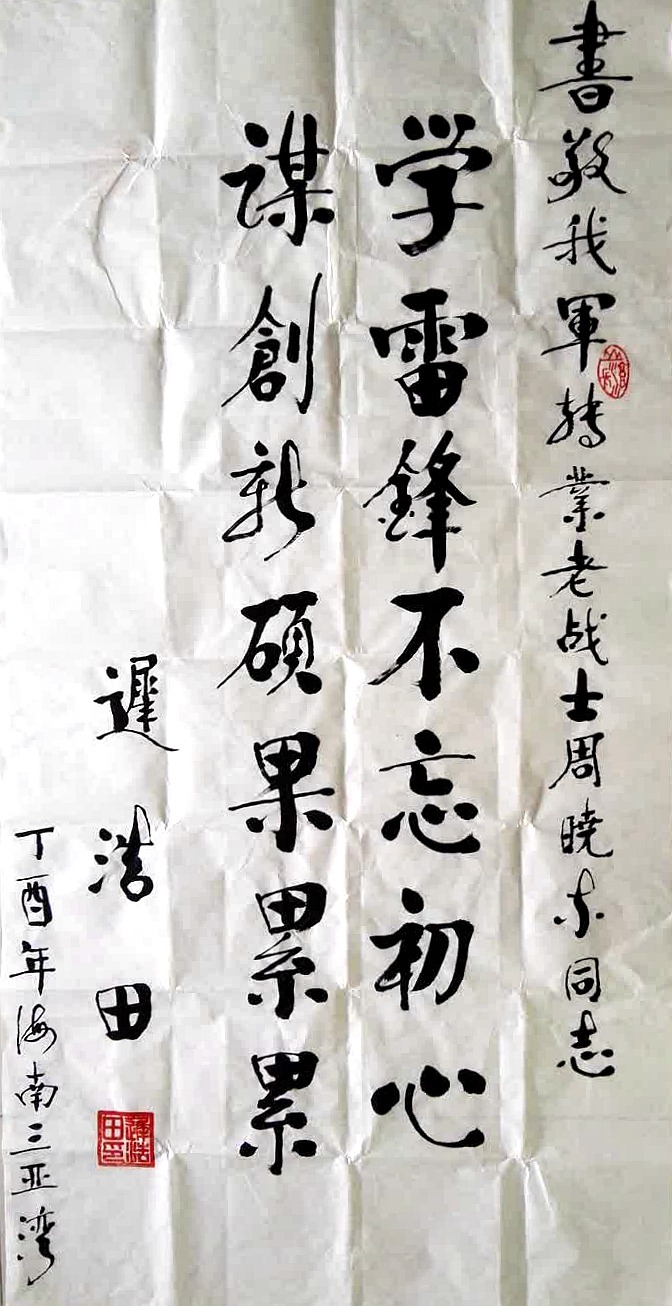 書敬我軍转業老战士周晓东同志
学雷鋒不忘初心
謀創新硕果累累
遲浩田
丁酉年海南三亚湾
遲浩田印